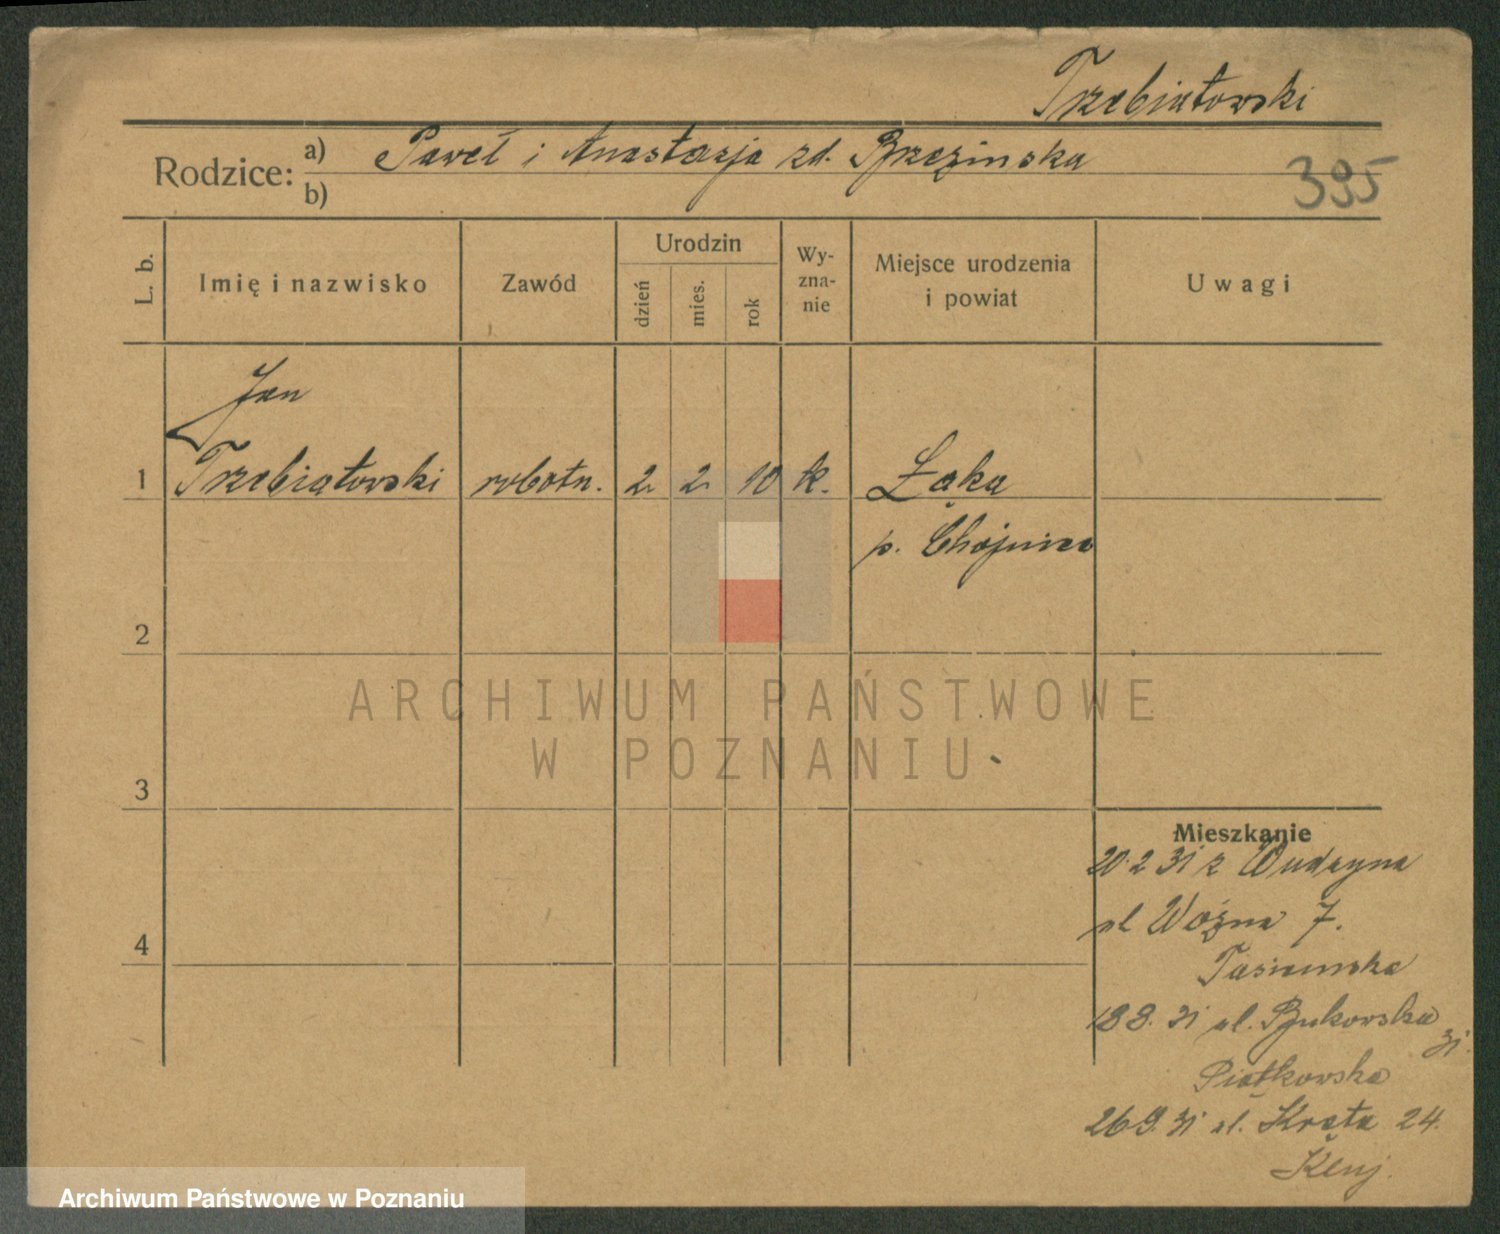 Trzebiatowski
Rodzice: a) Paweł i Anastazja zd. Brzezinska
b)
395
L. b.
Imię i nazwisko
Zawód
Urodzin
dzień
mies.
rok
Wy-
zna-
nie
Miejsce urodzenia
i powiat
Uwagi
Jan
1 Trzebiatowski robotn. 2. 2. 10 k. Łąka
p. Chojnice
2
3
4
Mieszkanie
20.2 31 z Wudzyna
ul Woźna 7.
Tasiemska
18 8. 31 ul. Bukowska 31.
Piątkowska
26 9. 31 ul. Kręta 24.
ARCHIWUM PAŃSTWOWE
W POZNANIU
Archiwum Państwowe w Poznaniu